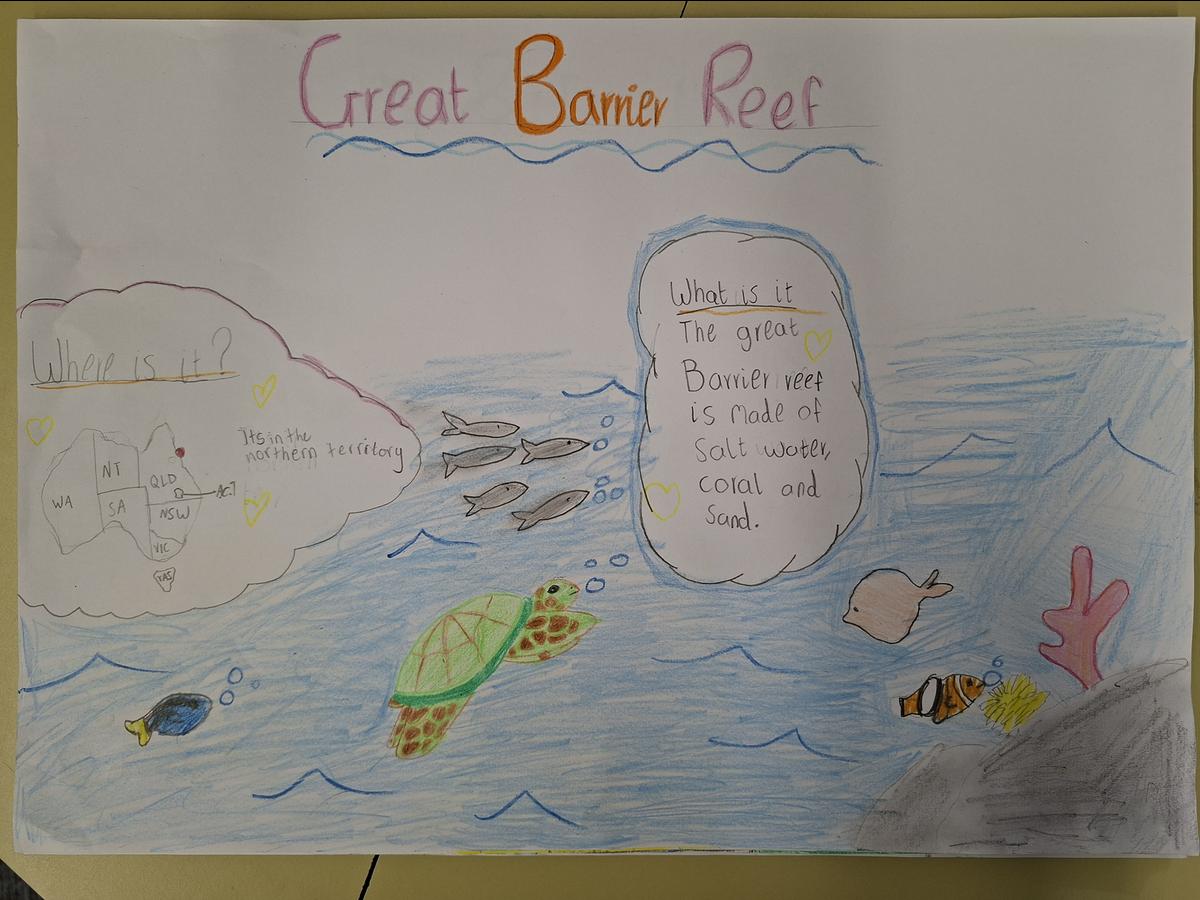 Great Barrier Reef
Where is it?
Its in the
northern territory
WA
NT
SA
QLD
ACT
NSW
VIC
TAS
What is it
The great
Barrier reef
is made of
Salt water,
coral and
Sand.